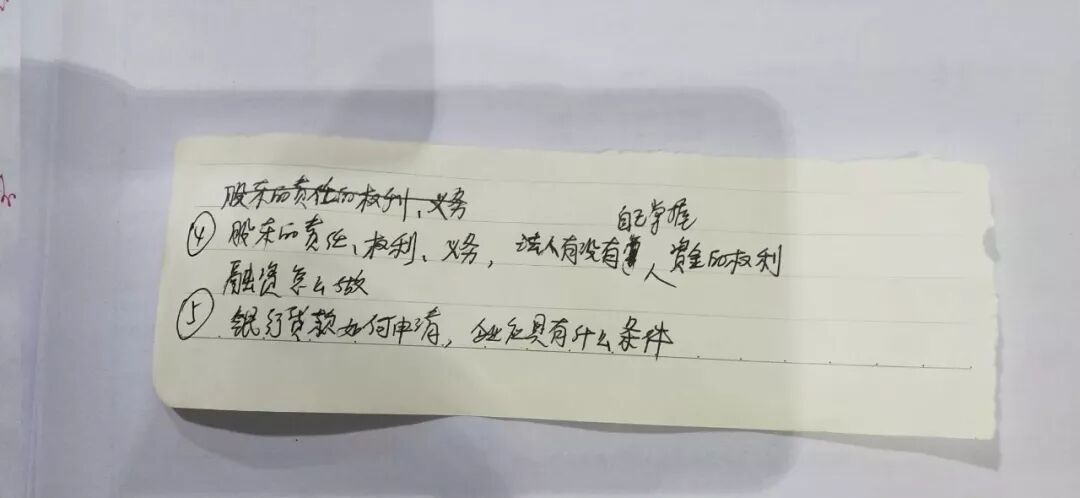 股东的责任的权利、义务
④ 股东的责任、权利、义务，法人有没有自己掌握人资金的权利
融资怎么做
⑤ 银行贷款如何申请，企业应具有什么条件